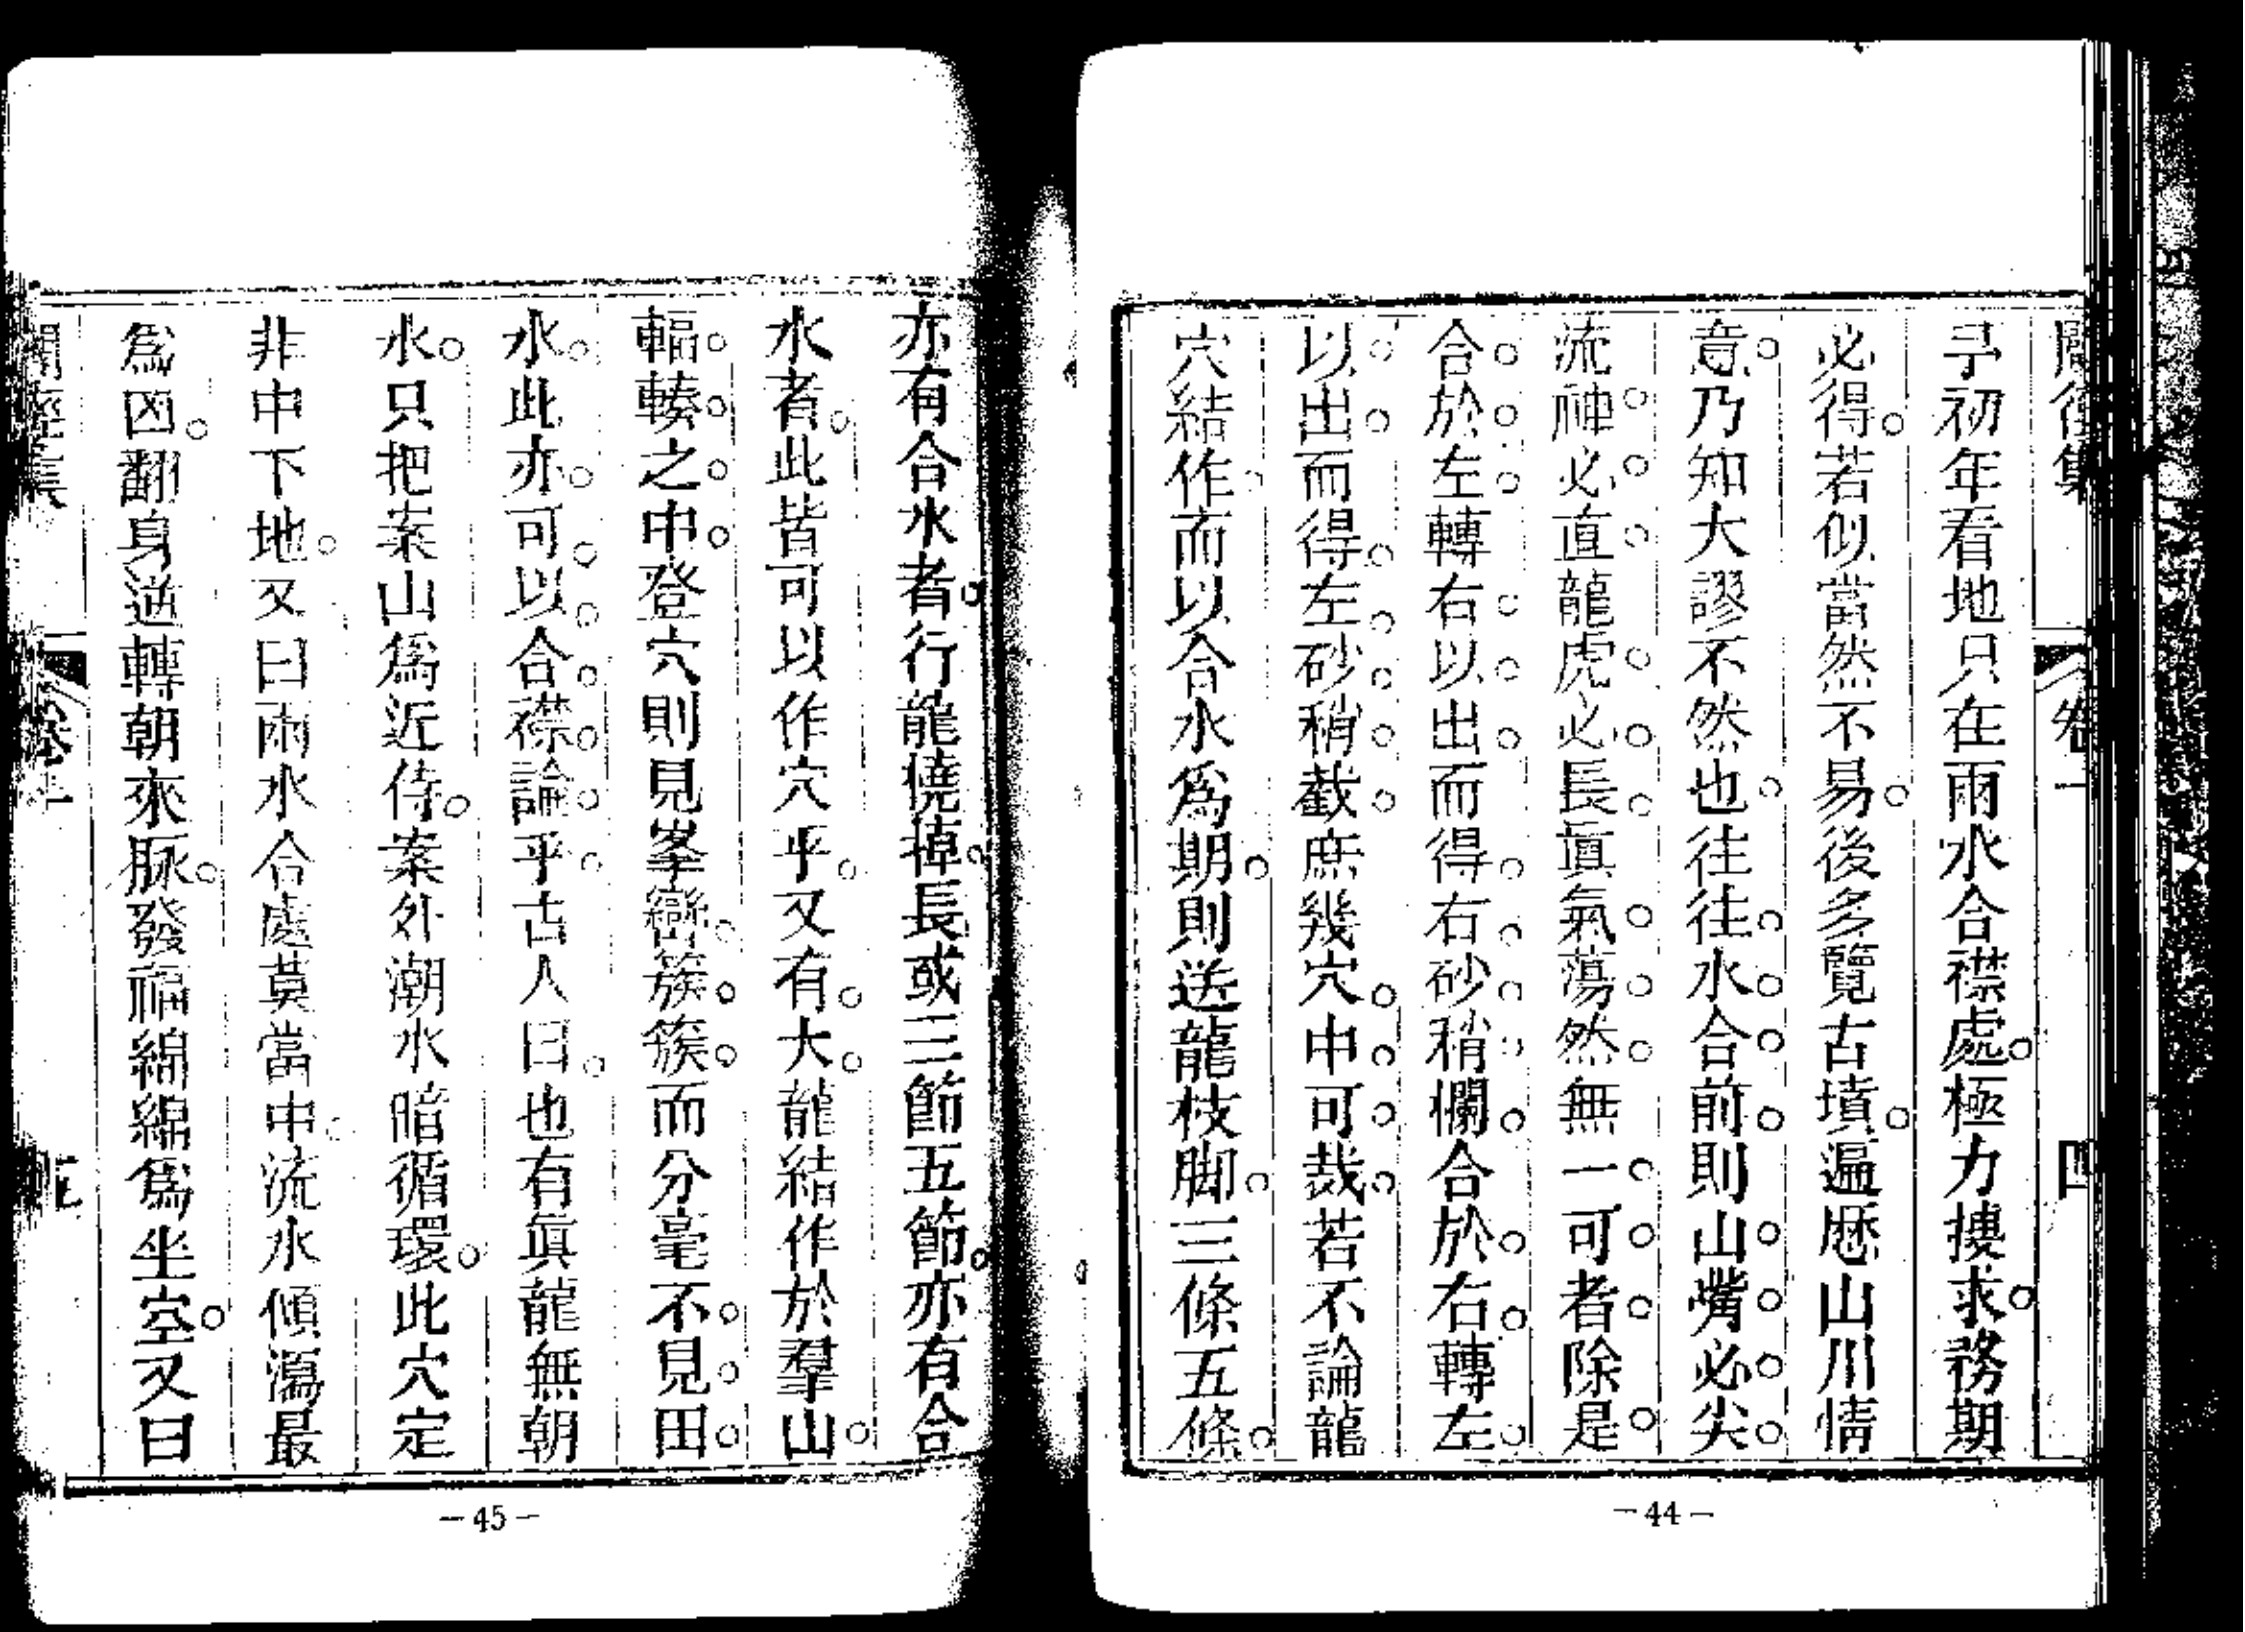 卷一
四
予初年看地只在兩水合襟處極力摟求務期
必得若似當然不易後多覽古墳遍歷山川情
意乃知大謬不然也往往水合前則山嘴必尖
流神必直龍虎必長眞氣蕩然無一可者除是
合於左轉右以出而得右砂稍欄合於右轉左
以出而得左砂稍截庶幾穴中可裁若不論龍
穴結作而以合水爲期則送龍枝脚三條五條
－44－
亦有合水者行龍橈掉長或三節五節亦有合
水者此皆可以作穴乎又有大龍結作於羣山
輻輳之中登穴則見峯巒簇簇而分毫不見田
水此亦可以合襟論乎古人曰也有眞龍無朝
水只把案山爲近侍案外潮水暗循環此穴定
非中下地又曰兩水合處莫當中流水傾瀉最
爲凶翻身逆轉朝來脉發福綿綿爲坐空又曰
五
－45－